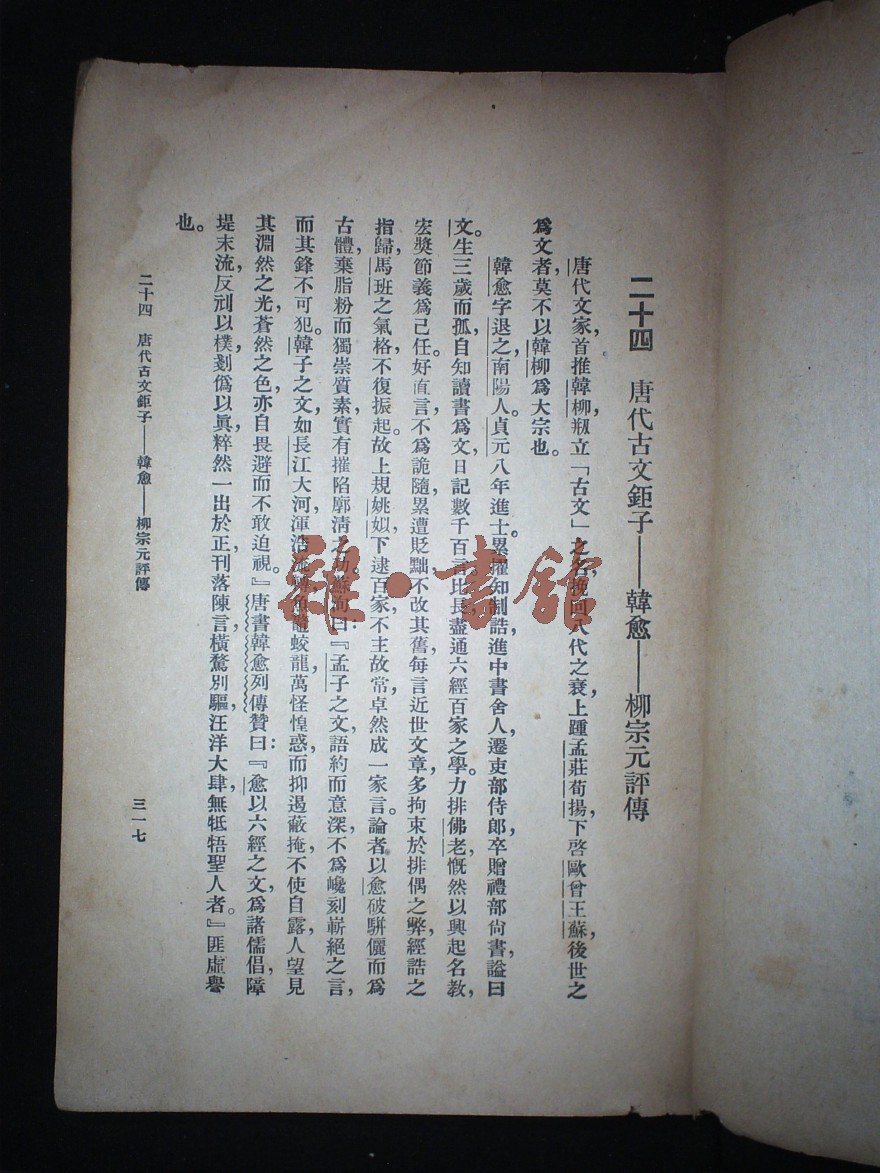 二十四　唐代古文鉅子——韓愈——柳宗元評傳
唐代文家，首推韓柳，剏立「古文」之名，挽回八代之衰，上踵孟莊荀揚，下啓歐曾王蘇，後世之
爲文者，莫不以韓柳爲大宗也。
韓愈字退之，南陽人。貞元八年進士。累擢知制誥，進中書舍人，遷吏部侍郎，卒贈禮部尙書，諡曰
文。生三歲而孤，自知讀書爲文，日記數千百言，比長，盡通六經百家之學。力排佛老，慨然以興起名教，
宏獎節義爲己任。好直言，不爲詭隨，累遭貶黜，不改其舊。每言近世文章，多拘束於排偶之弊，經誥之
指歸，馬班之氣格，不復振起。故上規姚姒，下逮百家，不主故常，卓然成一家言。論者以愈破駢儷而爲
古體，棄脂粉而獨崇質素，實有摧陷廓淸之功。蘇洵曰：『孟子之文，語約而意深，不爲巉刻嶄絕之言，
而其鋒不可犯。韓子之文，如長江大河，渾浩流轉，魚龞蛟龍，萬怪惶惑，而抑遏蔽掩，不使自露，人望見
其淵然之光，蒼然之色，亦自畏避而不敢迫視。』唐書韓愈列傳贊曰：『愈以六經之文，爲諸儒倡，障
堤末流，反刓以樸，剗僞以眞，粹然一出於正，刊落陳言，橫騖別驅，汪洋大肆，無牴牾聖人者。』匪虛譽
也。
二十四　唐代古文鉅子——韓愈——柳宗元評傳
三一七
雜·書館